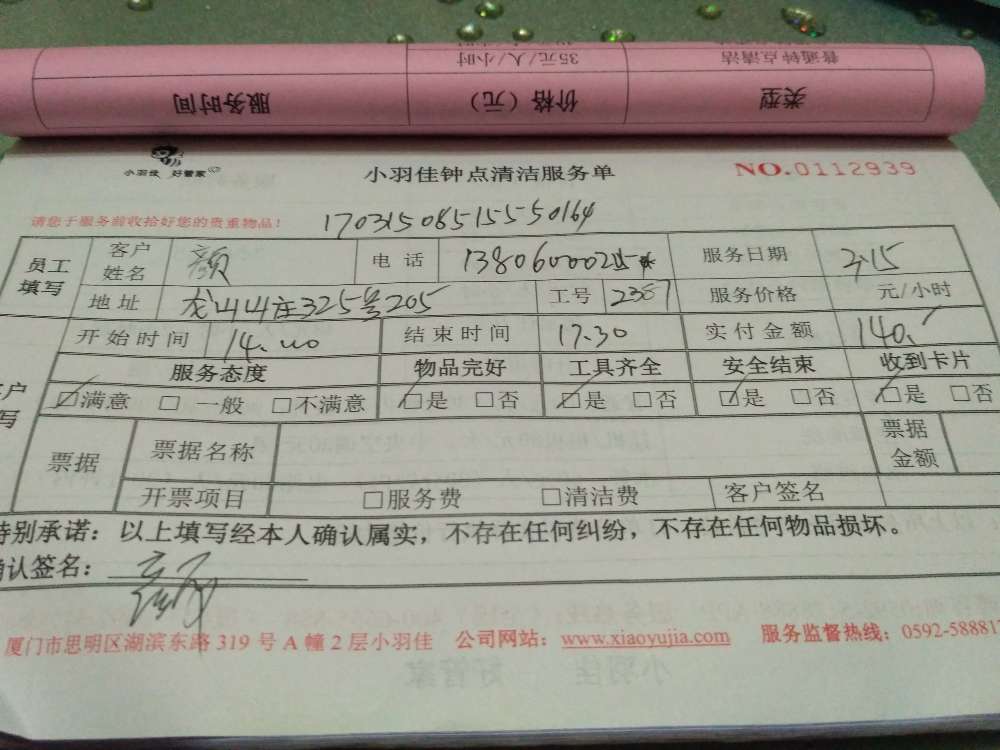 普通钟点清洁 35元/人/小时
类型 价格（元） 服务时间
小羽佳 好管家
小羽佳钟点清洁服务单
NO.0112939
请您于服务前收拾好您的贵重物品！
17031508515550164
员工填写 客户姓名 颜 电话 服务日期 3.15
地址 龙山山庄325号205 工号 2387 服务价格 元/小时
开始时间 14.00 结束时间 17.30 实付金额 140.
服务态度 物品完好 工具齐全 安全结束 收到卡片
☑满意 □一般 □不满意 ☑是 □否 ☑是 □否 ☑是 □否 ☑是 □否
票据 票据名称 票据金额
开票项目 □服务费 □清洁费 客户签名
特别承诺：以上填写经本人确认属实，不存在任何纠纷，不存在任何物品损坏。
确认签名：颜
厦门市思明区湖滨东路 319 号 A 幢 2 层小羽佳 公司网站：www.xiaoyujia.com 服务监督热线：0592-588812